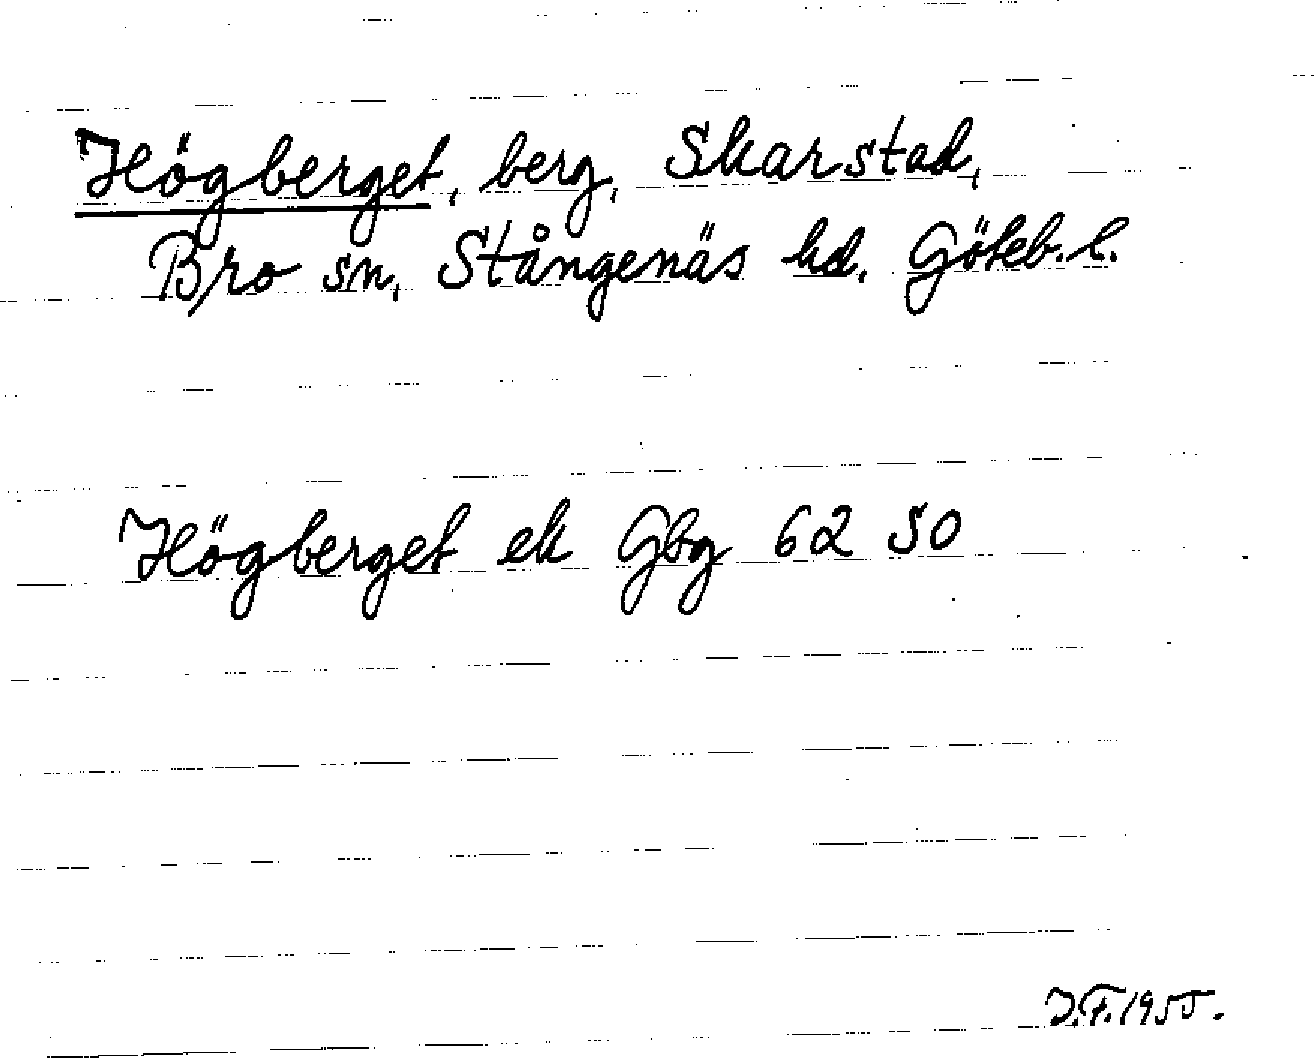 Högberget, berg, Skarstad,
Bro sn, Stångenäs hd. Göteb. l.
Högberget ek Gbg 62 50
J.F. 1955.